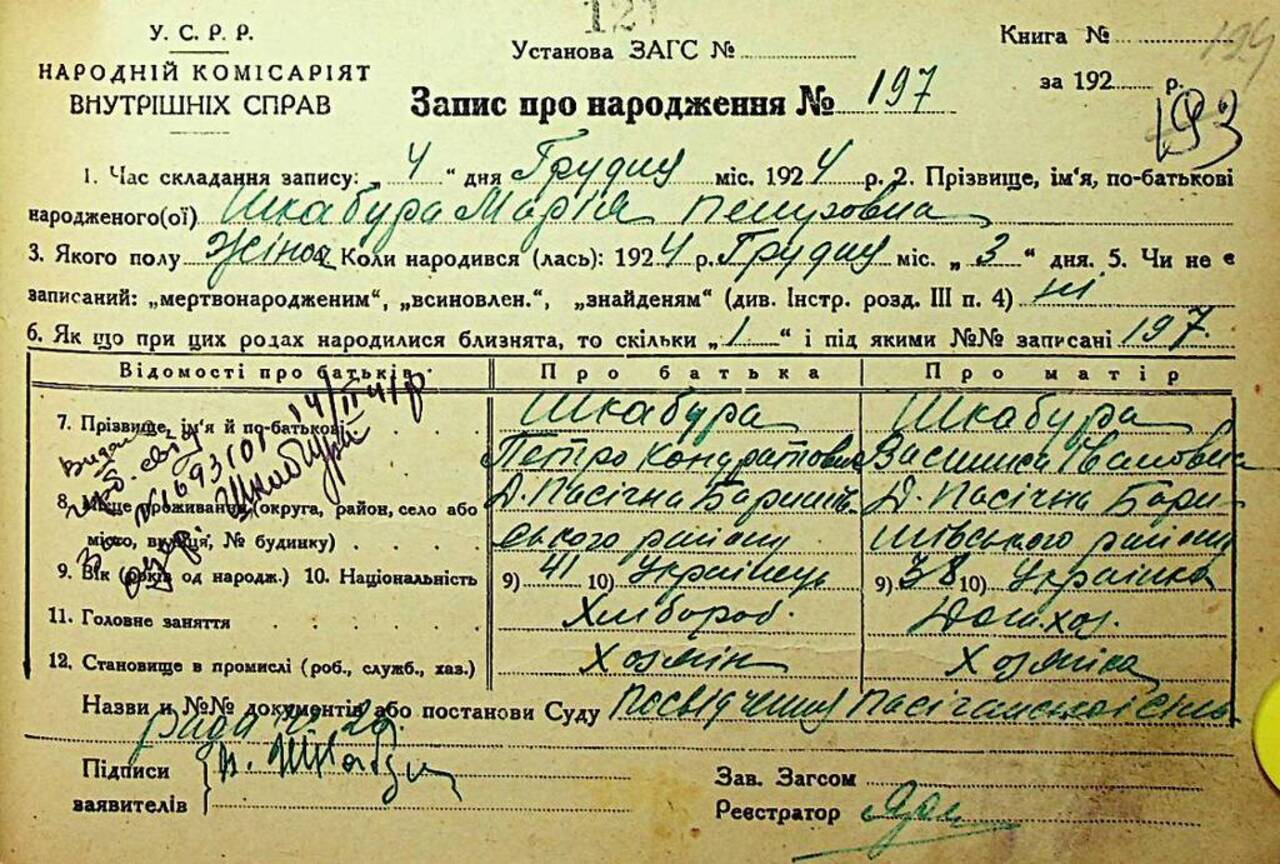 121
У. С. Р. Р.
НАРОДНІЙ КОМІСАРІЯТ
ВНУТРІШНІХ СПРАВ
Установа ЗАГС №
Книга №
за 192 р.
193
Запис про народження № 197
1. Час складання запису: „ 4 “ дня Грудня міс. 1924 р. 2. Прізвище, ім'я, по-батькові
народженого(ої) Шкабура Марія Петровна
3. Якого полу Жіноч Коли народився (лась): 1924 р. Грудня міс. „ 3 “ дня. 5. Чи не є
записаний: „мертвонародженим“, „всиновлен.“, „знайденям“ (див. Інстр. розд. III п. 4) ні
6. Як що при цих родах народилися близнята, то скільки „ 1 “ і під якими №№ записані 197.
Відомості про батьків. Про батька Про матір
7. Прізвище, ім'я й по-батькові Шкабура Шкабура
Петро Кондратович Василиса Івановна
8. Місце проживання (округа, район, село або Д. Пасічна Баришів- Д. Пасічна Бари-
місто, вулиця, № будинку) ського району шівського району
9. Вік (років од народж.) 10. Національність 9) 41 10) Українець 9) 38 10) Українка
11. Головне заняття Хлібороб. Дом. хоз.
12. Становище в промислі (роб., служб., хаз.) Хозяїн Хозяїка
Назви и №№ документів або постанови Суду Посвідчення Пасічанської сіль
ради № 20.
Підписи
заявителів
Зав. Загсом
Реєстратор